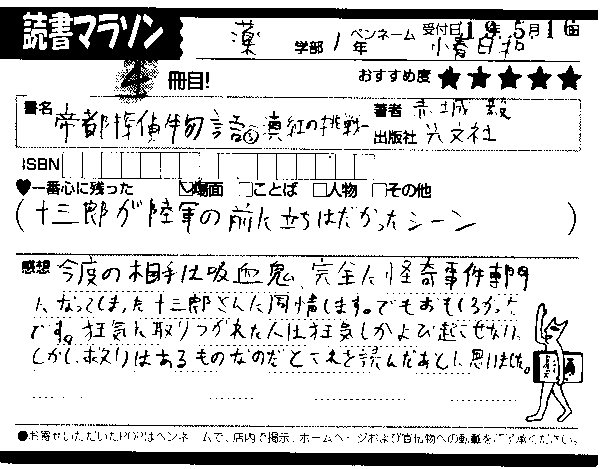 読書マラソン
薬 学部 1 年
ペンネーム 小春日和
受付日 19年 5月 16日
4 冊目!
おすすめ度 ★★★★★
書名 帝都探偵物語⑤真紅の挑戦
著者 赤城 毅
出版社 光文社
ISBN
♥一番心に残った ☑場面 □ことば □人物 □その他
(十三郎が陸軍の前に立ちはだかったシーン)
感想 今度の相手は吸血鬼、完全に怪奇事件専門
になってしまった十三郎さんに同情します。でもおもしろかった
です。狂気に取りつかれた人は狂気しかよび起こせない、
しかし救いはあるものなのだとこれを読んだあとに思いました。
●お寄せいただいたPOPはペンネームで、店内で掲示、ホームページおよび宣伝物への転載をご了承ください。